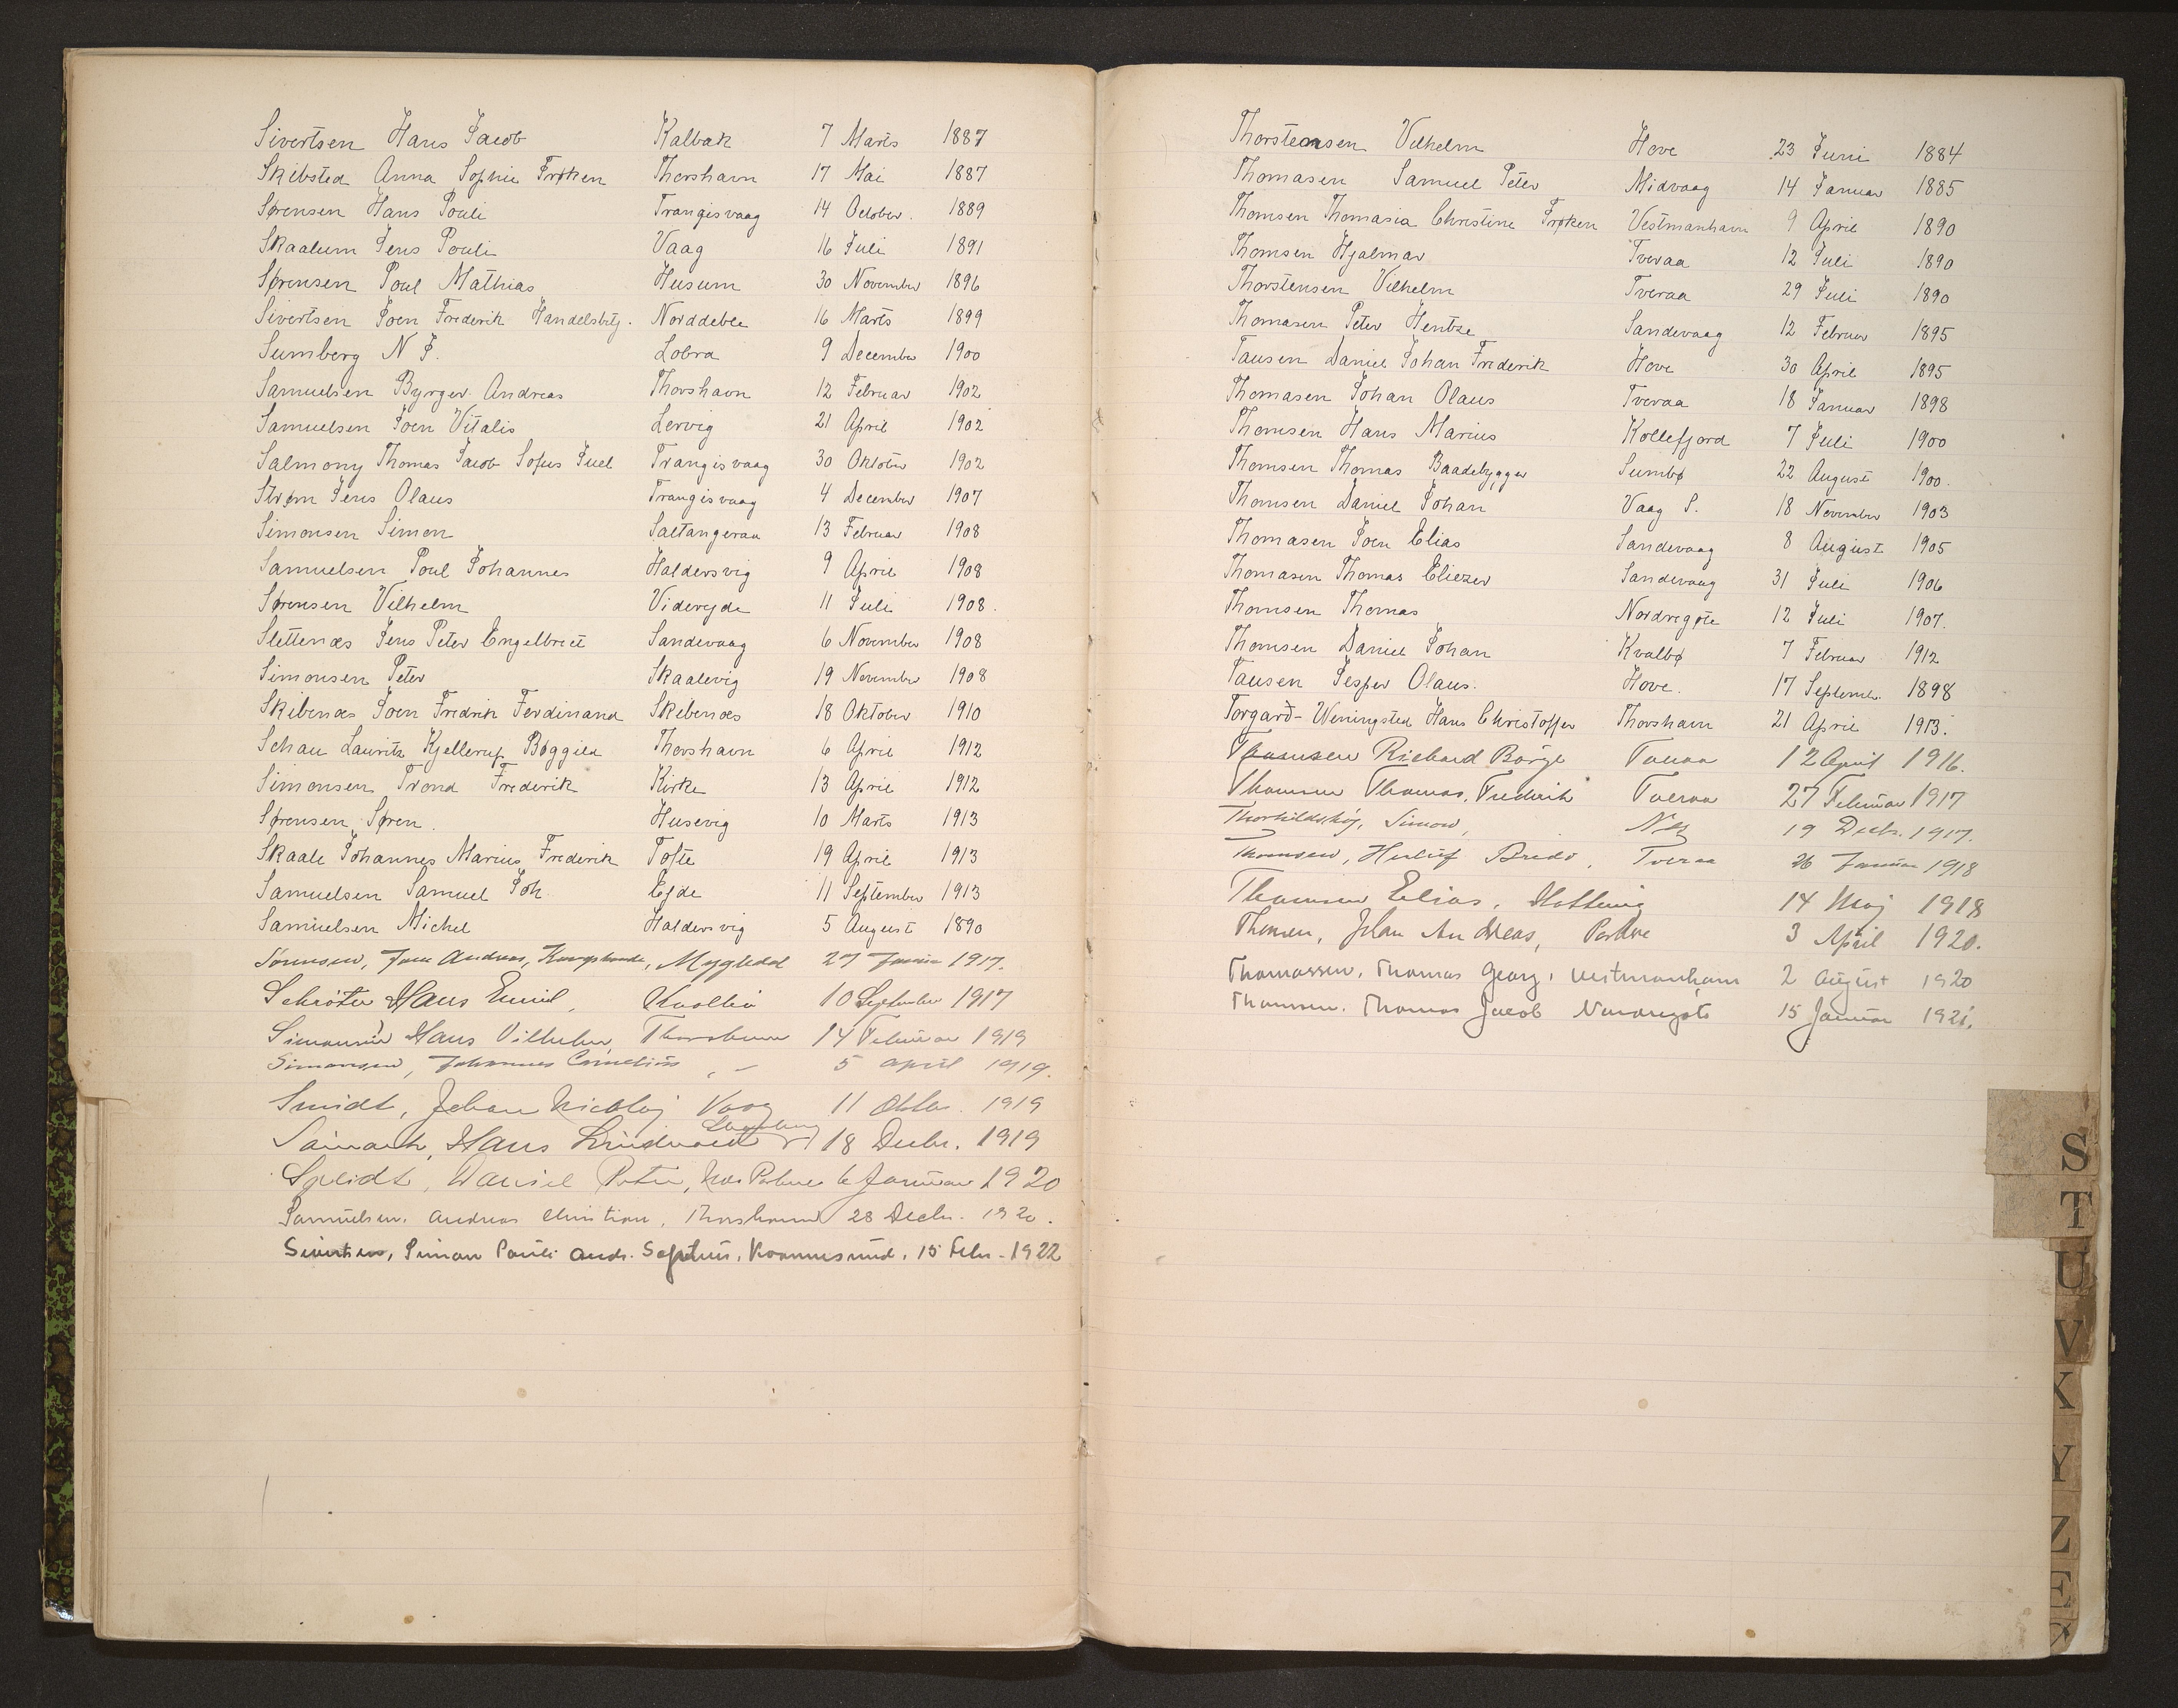 Sivertsen Hans Jacob Kalbak 7 Marts 1887
Skibsted Anna Sophie Frøken Thorshavn 17 Mai 1887
Sørensen Hans Pouli Trangisvaag 14 October. 1889
Skaalum Jens Pouli Vaag 16 Juli 1891
Sørensen Poul Mathias Husum 30 November 1896
Sivertsen Joen Frederik Handelsbetj. Norddeble 16 Marts 1899
Sumberg N J. Lobra 9 December 1900
Samuelsen Byrger Andreas Thorshavn 12 Februar 1902
Samuelsen Joen Vitalis Lervig 21 April 1902
Salmony Thomas Jacob Sofus Juel Trangisvaag 30 Oktober 1902
Strøm Jens Olaus Trangisvaag 4 December 1907
Simonsen Simon Saltangeraa 13 Februar 1908
Samuelsen Poul Johannes Haldersvig 9 April 1908
Sørensen Vilhelm Viderejde 11 Juli 1908.
Slettenæs Jens Peter Engelbrect Sandevaag 6 November 1908
Simonsen Peter Skaalevig 19 November 1908
Skibenæs Joen Fredrik Ferdinand Skibenæs 18 Oktober 1910
Schau Lauritz Kjellerup Bøggild Thorshavn 6 April 1912
Simonsen Trond Frederik Kirke 13 April 1912
Sørensen Søren. Husevig 10 Marts 1913
Skaale Johannes Marius Frederik Tofte 19 April 1913
Samuelsen Samuel Joh. Ejde 11 September 1913
Samuelsen Michel Haldersvig 5 August 1890
Sørensen, Jens Andreas, Kongsbonde, Mygledal 27 Januar 1917.
Schröter Hans Emil, Kvalbö 10 September 1917
Simonsen Hans Vilhelm Thorshavn 14 Februar 1919
Simonsen, Johannes Cornelius, - 5 april 1919.
Smidt, Johan Nicolaj Vaag 11 Oktbr. 1919
Hans Lindvald 18 Decbr. 1919
Splidt, Daniel Peter, 6 Januar 1920
Samuelsen, Andreas Christian, Thorshavn 28 Decbr. 1920.
Sivertsen, Simon Pauli Andr. Septimus, Kvannesund, 15 Febr. 1922
Thorstensen Vilhelm Hove 23 Juni 1884
Thomasen Samuel Peter Midvaag 14 Januar 1885
Thomsen Thomasia Christine Frøken Vestmanhavn 9 April 1890
Thomsen Hjalmar Tveraa 12 Juli 1890
Thorstensen Vilhelm Tveraa 29 Juli 1890
Thomasen Peter Hentze Sandevaag 12 Februar 1895
Tausen Daniel Johan Frederik Hove 30 April 1895
Thomasen Johan Olaus Tveraa 18 Januar 1898
Thomsen Hans Marius Kollefjord 7 Juli 1900
Thomsen Thomas Baadebygger Sumbø 22 August 1900.
Thomsen Daniel Johan Vaag S. 18 November 1903
Thomasen Joen Elias Sandevaag 8 August 1905
Thomasen Thomas Eliezer Sandevaag 31 Juli 1906
Thomsen Thomas Nordregøte 12 Juli 1907.
Thomsen Daniel Johan Kvalbø 7 Februar 1912
Tausen Jesper Olaus. Hove. 17 Septembr. 1898
Torgarð-Weningsted Hans Christoffer Thorshavn 21 April 1913.
Thomsen Richard Börge Tveraa 12 April 1916.
Thomsen Thomas, Frederik Tveraa 27 Februar 1917
Thorkildshöj, Simon, Næs 19 Decbr. 1917.
Thomsen, Herluf Bredo, Tveraa 26 Januar 1918
Thomsen Elias, 14 Maj 1918
Thomsen, Johan Andreas, Porkere 3 April 1920.
Thomassen, Thomas Georg, Vestmanhavn 2 August 1920
Thomsen. Thomas Jacob Nordregöte 15 Januar 1921.
S
T
U
V
X
Y
Z
Æ
Ø